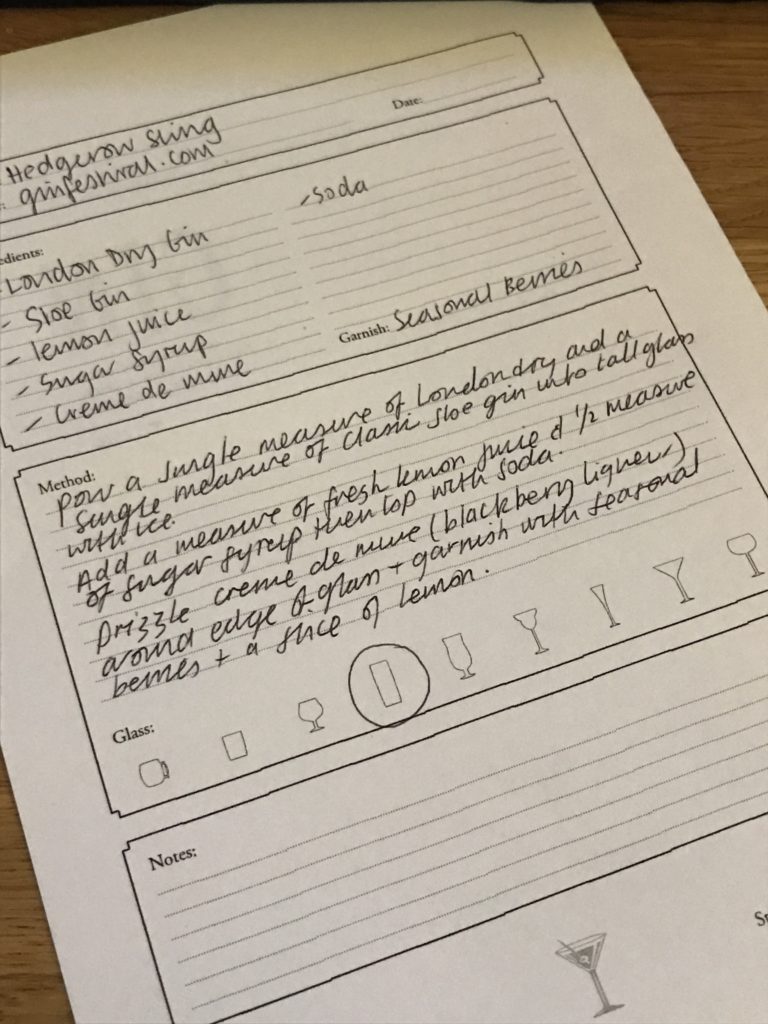 Date:
Hedgerow Sling
ginfestival.com
edients:
London Dry Gin
- Sloe Gin
- lemon juice
- Sugar Syrup
- Creme de mure
- soda
Garnish: Seasonal Berries
Method:
Pour a single measure of London dry and a
single measure of classic sloe gin into tall glass
with ice.
Add a measure of fresh lemon juice & 1/2 measure
of sugar syrup then top with soda.
Drizzle creme de mure (blackberry liqueur)
around edge of glass + garnish with seasonal
berries + a slice of lemon.
Glass:
Notes: